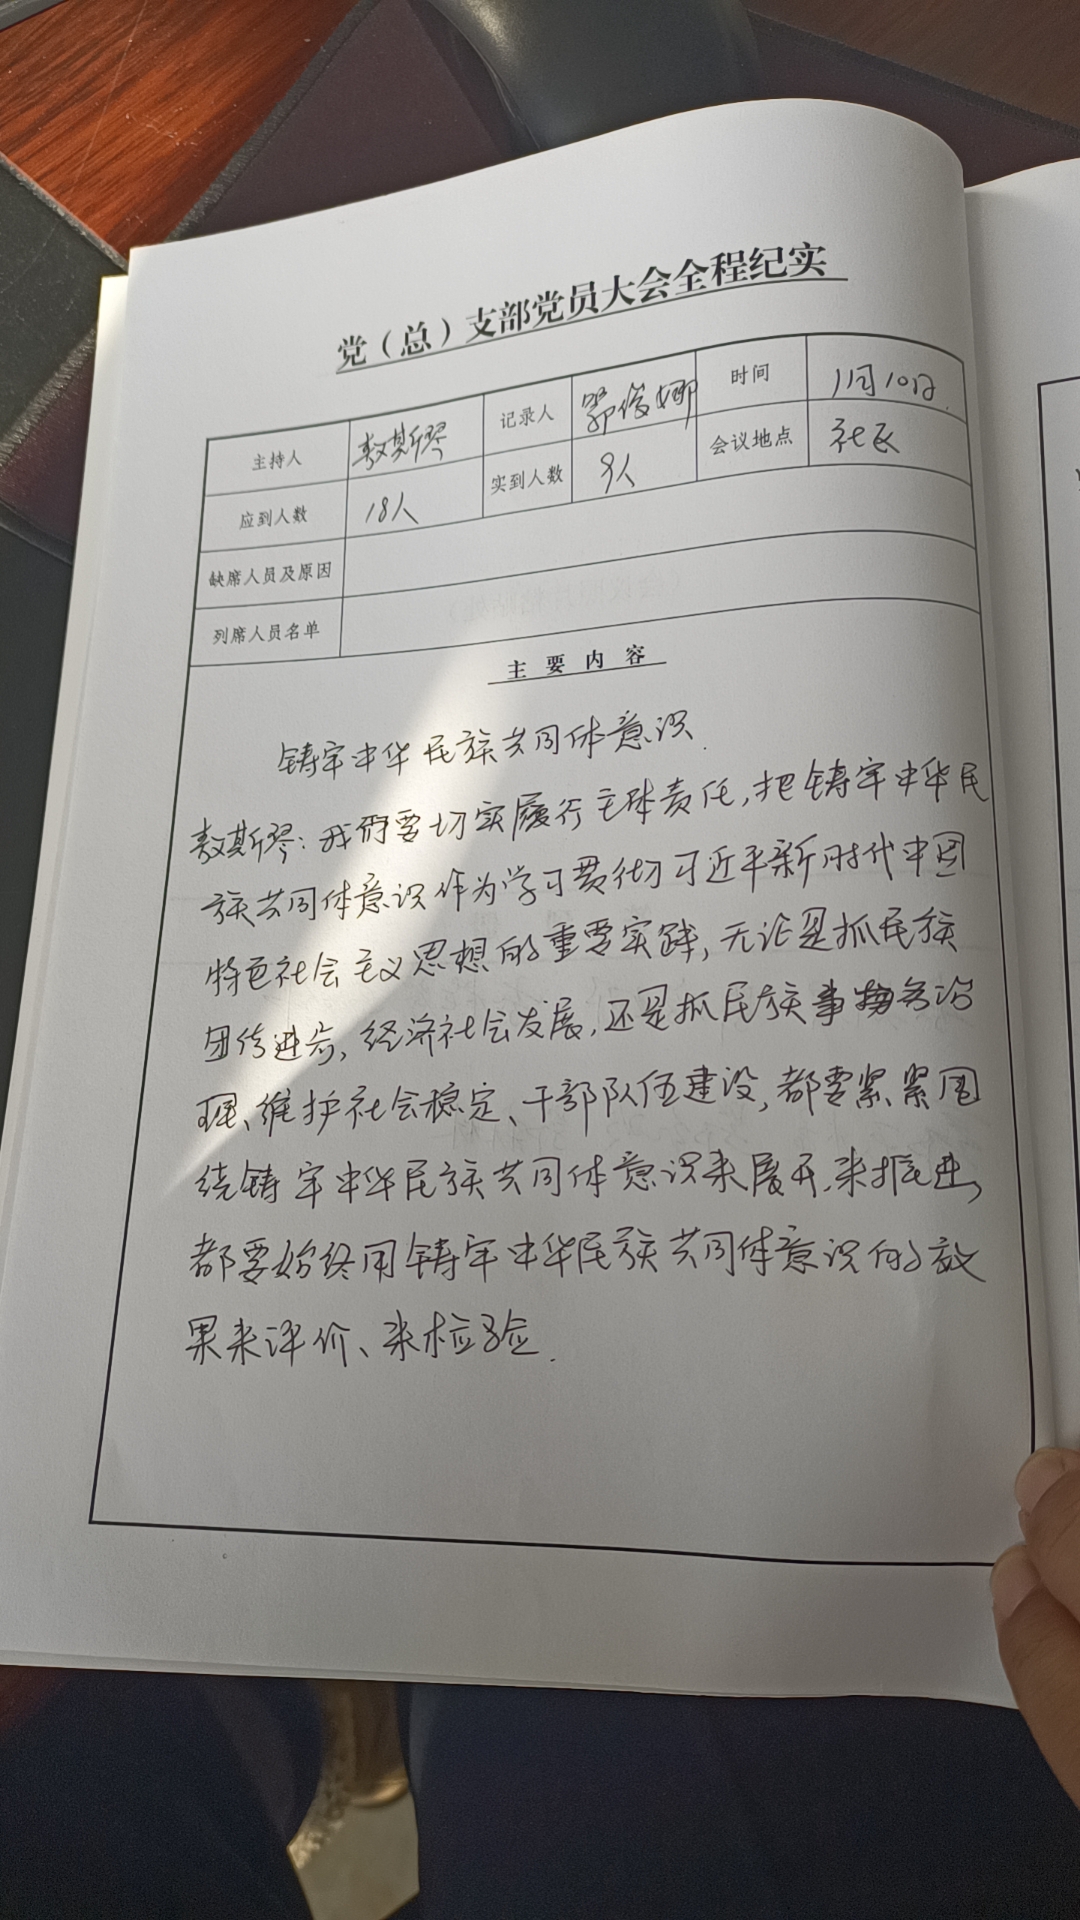 党（总）支部党员大会全程纪实
主持人 敖其琴 记录人 郭俊娜 时间 11月10日
应到人数 18人 实到人数 9人 会议地点 社区
缺席人员及原因
列席人员名单
主要内容
铸牢中华民族共同体意识.
敖其琴：我们要切实履行主体责任，把铸牢中华民
族共同体意识作为学习贯彻习近平新时代中国
特色社会主义思想的重要实践，无论是抓民族
团结进步，经济社会发展，还是抓民族事务治
理、维护社会稳定、干部队伍建设，都要紧紧围
绕铸牢中华民族共同体意识来展开、来推进，
都要始终用铸牢中华民族共同体意识的效
果来评价、来检验.